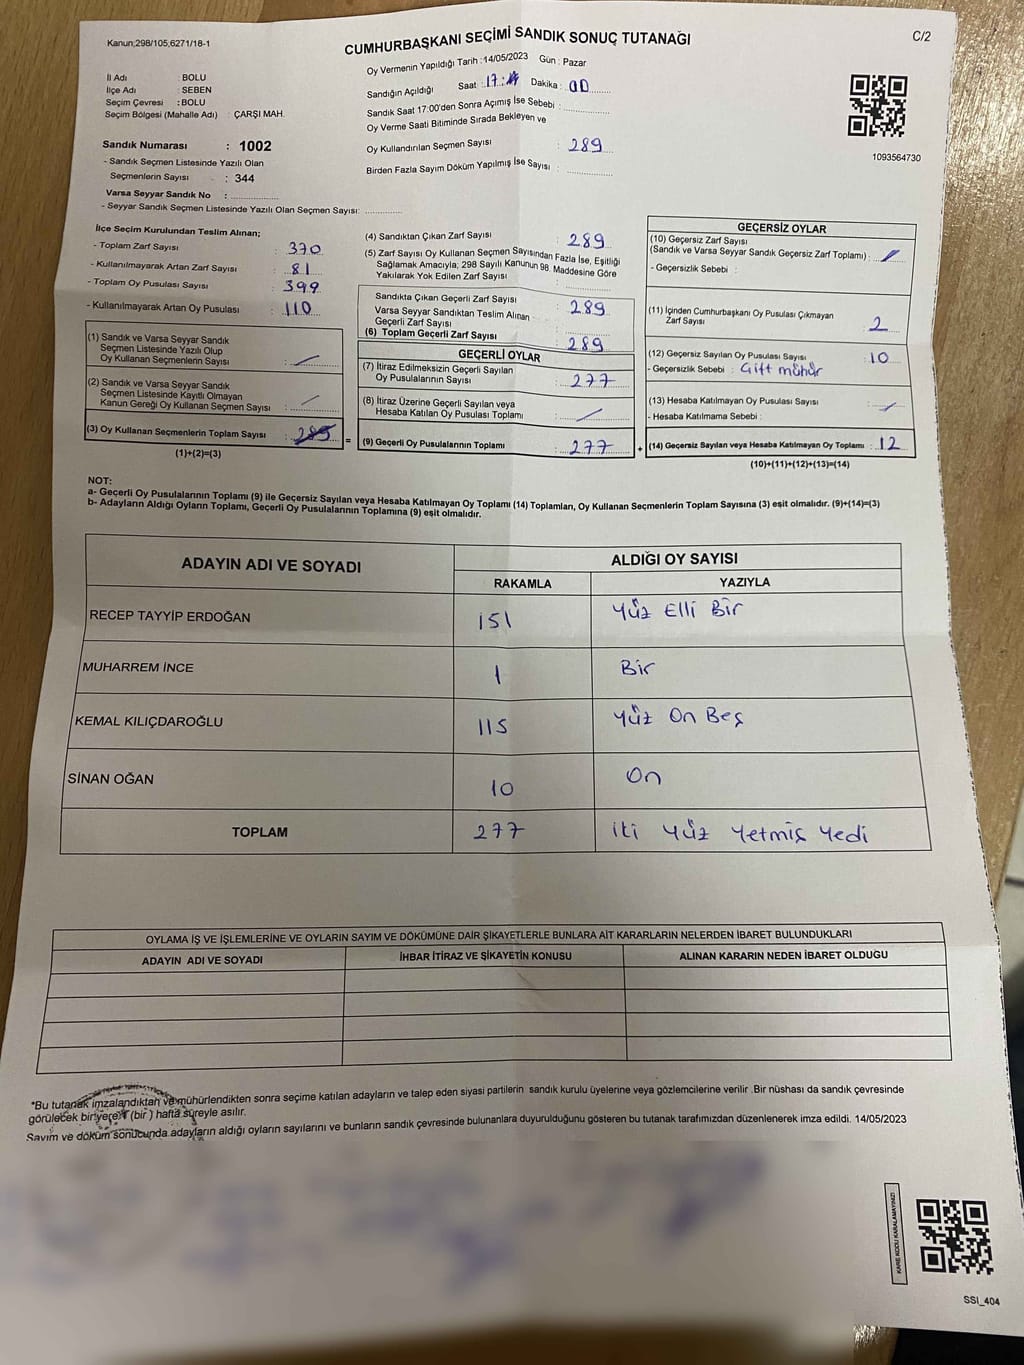 Kanun;298/105;6271/18-1
C/2
CUMHURBAŞKANI SEÇİMİ SANDIK SONUÇ TUTANAĞI
Oy Vermenin Yapıldığı Tarih : 14/05/2023 Gün : Pazar
İl Adı : BOLU
İlçe Adı : SEBEN
Seçim Çevresi : BOLU
Seçim Bölgesi (Mahalle Adı) : ÇARŞI MAH.
Sandığın Açıldığı Saat : 17: Dakika : 00
Sandık Saat 17:00'den Sonra Açımış İse Sebebi :
Oy Verme Saati Bitiminde Sırada Bekleyen ve
Oy Kullandırılan Seçmen Sayısı : 289
Birden Fazla Sayım Döküm Yapılmış İse Sayısı :
1093564730
Sandık Numarası : 1002
- Sandık Seçmen Listesinde Yazılı Olan
Seçmenlerin Sayısı : 344
Varsa Seyyar Sandık No :
- Seyyar Sandık Seçmen Listesinde Yazılı Olan Seçmen Sayısı:
İlçe Seçim Kurulundan Teslim Alınan;
- Toplam Zarf Sayısı : 370
- Kullanılmayarak Artan Zarf Sayısı : 81
- Toplam Oy Pusulası Sayısı : 399
- Kullanılmayarak Artan Oy Pusulası : 110
(1) Sandık ve Varsa Seyyar Sandık
Seçmen Listesinde Yazılı Olup
Oy Kullanan Seçmenlerin Sayısı :
(2) Sandık ve Varsa Seyyar Sandık
Seçmen Listesinde Kayıtlı Olmayan
Kanun Gereği Oy Kullanan Seçmen Sayısı :
(3) Oy Kullanan Seçmenlerin Toplam Sayısı : 289 =
(1)+(2)=(3)
(4) Sandıktan Çıkan Zarf Sayısı : 289
(5) Zarf Sayısı Oy Kullanan Seçmen Sayısından Fazla İse, Eşitliği
Sağlamak Amacıyla; 298 Sayılı Kanunun 98. Maddesine Göre
Yakılarak Yok Edilen Zarf Sayısı :
Sandıkta Çıkan Geçerli Zarf Sayısı : 289
Varsa Seyyar Sandıktan Teslim Alınan
Geçerli Zarf Sayısı :
(6) Toplam Geçerli Zarf Sayısı : 289
GEÇERLİ OYLAR
(7) İtiraz Edilmeksizin Geçerli Sayılan
Oy Pusulalarının Sayısı : 277
(8) İtiraz Üzerine Geçerli Sayılan veya
Hesaba Katılan Oy Pusulası Toplamı :
(9) Geçerli Oy Pusulalarının Toplamı : 277 +
GEÇERSİZ OYLAR
(10) Geçersiz Zarf Sayısı
(Sandık ve Varsa Seyyar Sandık Geçersiz Zarf Toplamı) :
- Geçersizlik Sebebi :
(11) İçinden Cumhurbaşkanı Oy Pusulası Çıkmayan
Zarf Sayısı : 2
(12) Geçersiz Sayılan Oy Pusulası Sayısı : 10
- Geçersizlik Sebebi : Çift mühür
(13) Hesaba Katılmayan Oy Pusulası Sayısı :
- Hesaba Katılmama Sebebi :
(14) Geçersiz Sayılan veya Hesaba Katılmayan Oy Toplamı : 12
(10)+(11)+(12)+(13)=(14)
NOT:
a- Geçerli Oy Pusulalarının Toplamı (9) ile Geçersiz Sayılan veya Hesaba Katılmayan Oy Toplamı (14) Toplamları, Oy Kullanan Seçmenlerin Toplam Sayısına (3) eşit olmalıdır. (9)+(14)=(3)
b- Adayların Aldığı Oyların Toplamı, Geçerli Oy Pusulalarının Toplamına (9) eşit olmalıdır.
ADAYIN ADI VE SOYADI
ALDIĞI OY SAYISI
RAKAMLA YAZIYLA
RECEP TAYYİP ERDOĞAN 151 Yüz Elli Bir
MUHARREM İNCE 1 Bir
KEMAL KILIÇDAROĞLU 115 Yüz On Beş
SİNAN OĞAN 10 On
TOPLAM 277 iki yüz yetmiş yedi
OYLAMA İŞ VE İŞLEMLERİNE VE OYLARIN SAYIM VE DÖKÜMÜNE DAİR ŞİKAYETLERLE BUNLARA AİT KARARLARIN NELERDEN İBARET BULUNDUKLARI
ADAYIN ADI VE SOYADI İHBAR İTİRAZ VE ŞİKAYETİN KONUSU ALINAN KARARIN NEDEN İBARET OLDUĞU
*Bu tutanak imzalandıktan ve mühürlendikten sonra seçime katılan adayların ve talep eden siyasi partilerin sandık kurulu üyelerine veya gözlemcilerine verilir .Bir nüshası da sandık çevresinde
görülecek bir yere 1 (bir ) hafta süreyle asılır.
Sayım ve döküm sonucunda adayların aldığı oyların sayılarını ve bunların sandık çevresinde bulunanlara duyurulduğunu gösteren bu tutanak tarafımızdan düzenlenerek imza edildi. 14/05/2023
KARE KODU KARALAMAYINIZ!
SSI_404